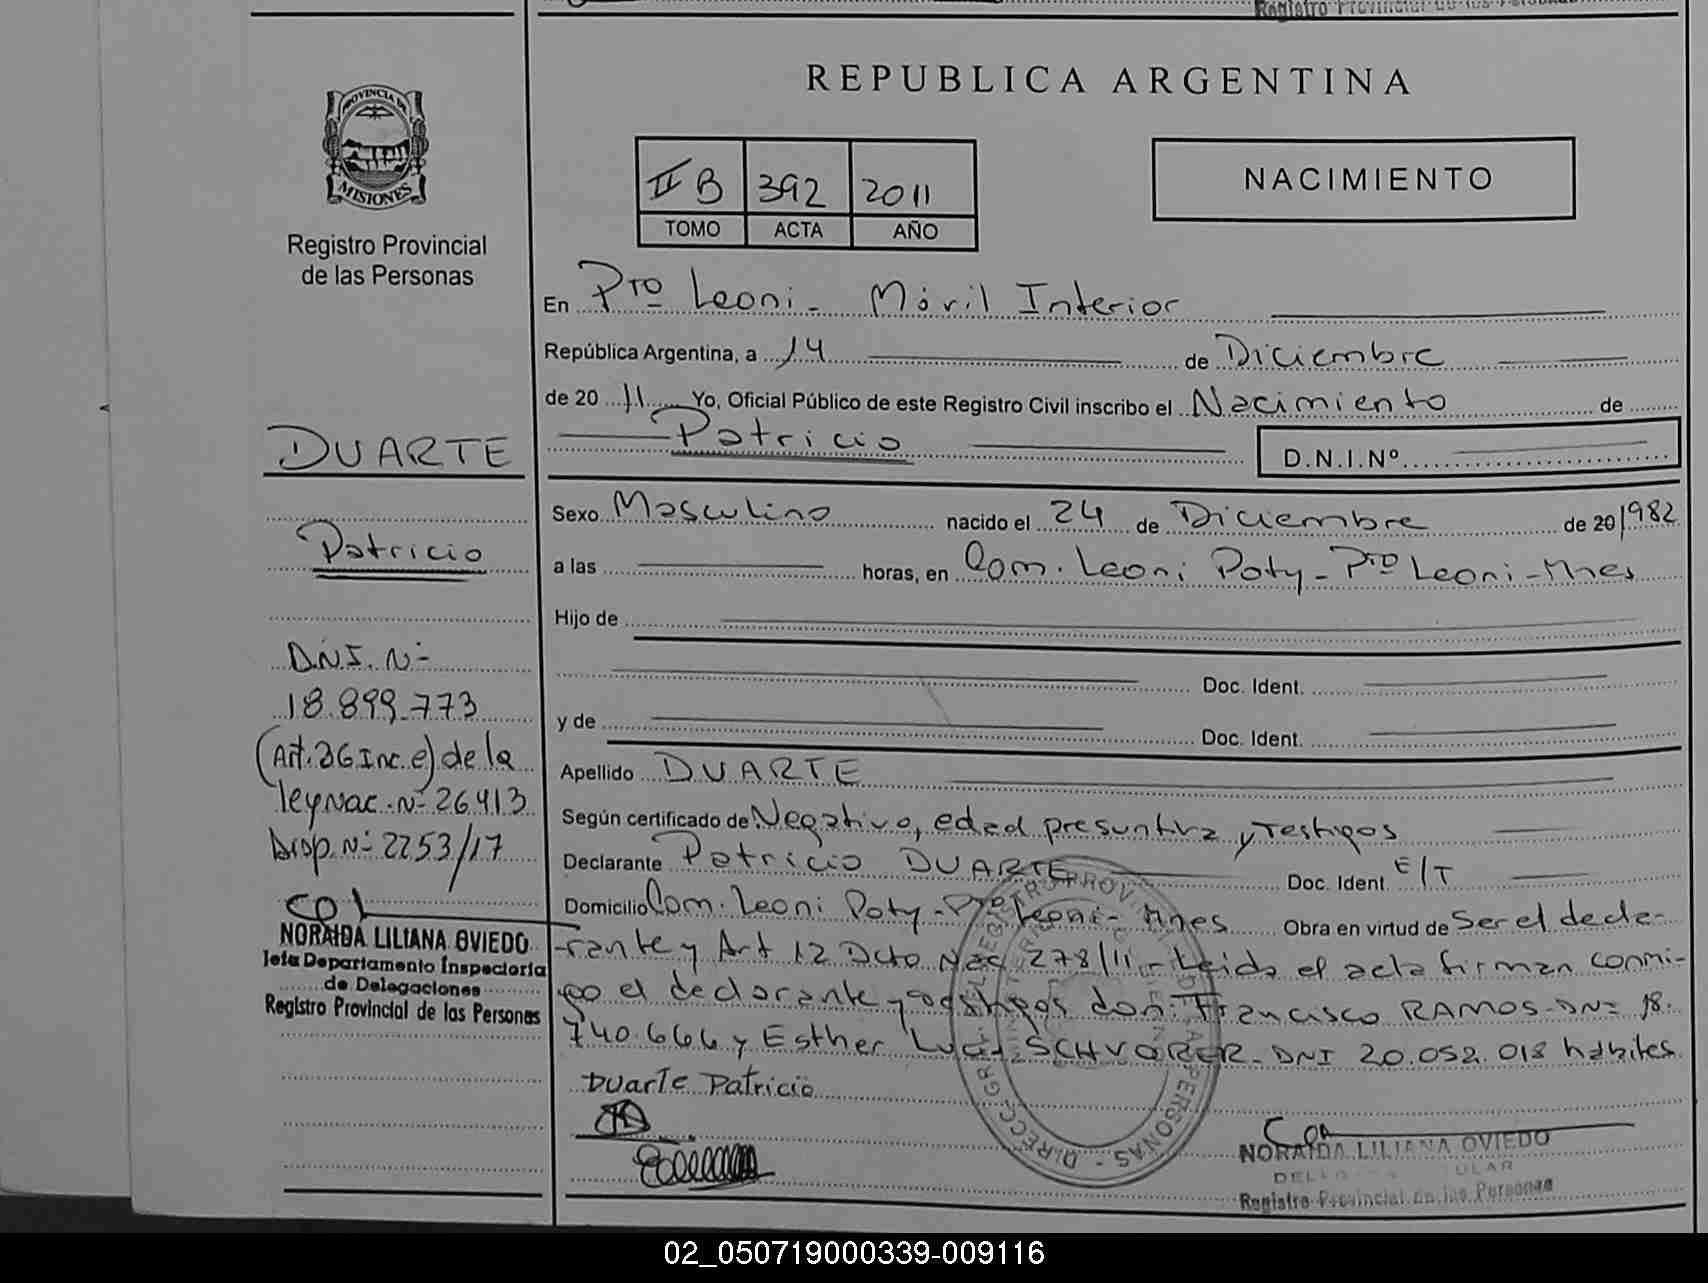 Registro Provincial de las Personas
REPUBLICA ARGENTINA
PROVINCIA DE
MISIONES
Registro Provincial
de las Personas
II B 392 2011
TOMO ACTA AÑO
NACIMIENTO
En Pto Leoni - Móvil Interior
República Argentina, a 14 de Diciembre
de 20 11 Yo, Oficial Público de este Registro Civil inscribo el Nacimiento de
Patricio
D.N.I.Nº
DUARTE
Patricio
D.N.I. Nº
18.899.773
(Art. 36 Inc. e) de la
ley Nac. Nº 26.413
Disp. Nº 2253/17
NORAIDA LILIANA OVIEDO
Jefa Departamento Inspectoria
de Delegaciones
Registro Provincial de las Personas
Sexo Masculino nacido el 24 de Diciembre de 20 1982
a las horas, en Com. Leoni Poty - Pto Leoni - Mnes
Hijo de
Doc. Ident.
y de
Doc. Ident.
Apellido DUARTE
Según certificado de Negativo, edad presuntiva y Testigos
Declarante Patricio DUARTE Doc. Ident E/T
Domicilio Com. Leoni Poty - Pto Leoni - Mnes Obra en virtud de Ser el decla-
rante y Art 12 Dcto Nac 278/11 - Leida el acta firman conmi-
go el declarante y testigos don: Francisco RAMOS - DNI 18.
740.666 y Esther SCHVORER - DNI 20.052.018 habiles
Duarte Patricio
NORAIDA LILIANA OVIEDO
Registro Provincial de las Personas
02_050719000339-009116